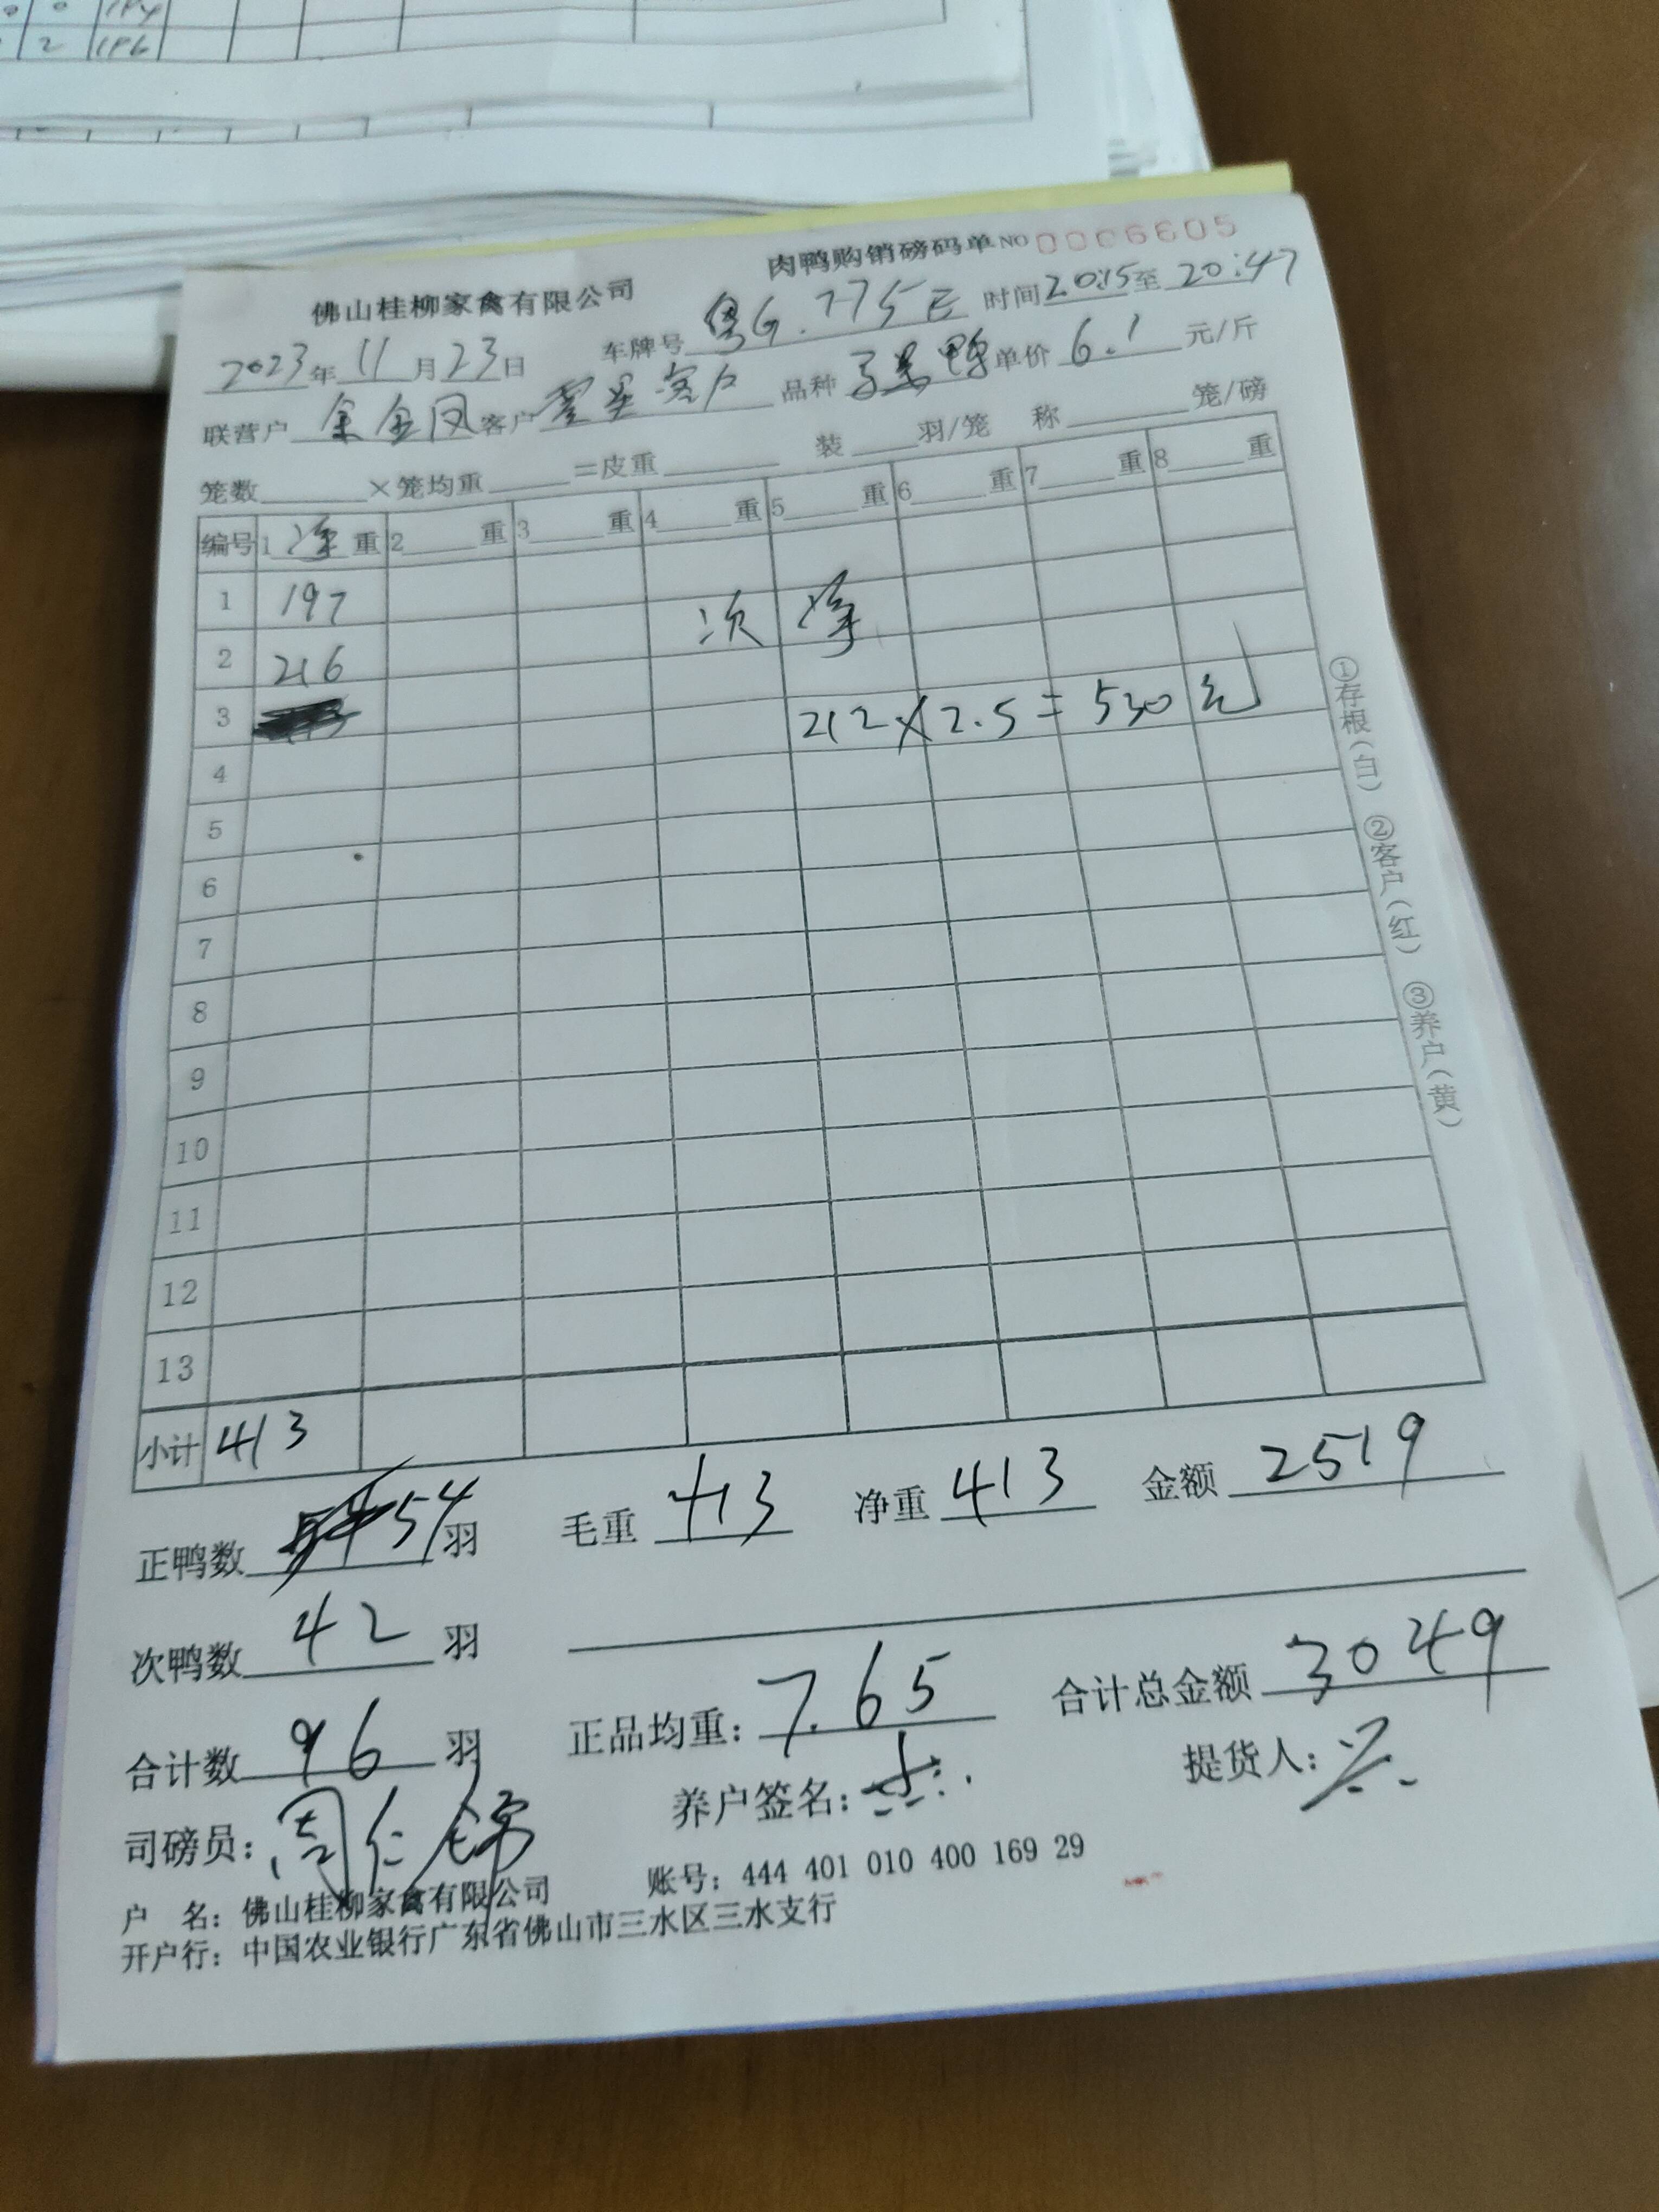 0 0 1P4
2 1P6
肉鸭购销磅码单 NO 0006605
佛山桂柳家禽有限公司
2023年11月23日 车牌号粤G.775E 时间20:15至20:47
联营户金凤 客户零星客户 品种 鸭 单价6.1元/斤
笼数 ×笼均重 =皮重 装 羽/笼 称 笼/磅
编号 1净重 2 重 3 重 4 重 5 重 6 重 7 重 8 重
1 197
次 净
2 216
3 212×2.5=530元
4
5
6
7
8
9
10
11
12
13
小计 413
①存根(白) ②客户(红) ③养户(黄)
正鸭数 54羽 毛重413 净重413 金额2519
次鸭数42羽
合计数96羽 正品均重:7.65 合计总金额3049
司磅员:周仁锦 养户签名: 提货人:
户 名:佛山桂柳家禽有限公司 账号:444 401 010 400 169 29
开户行:中国农业银行广东省佛山市三水区三水支行